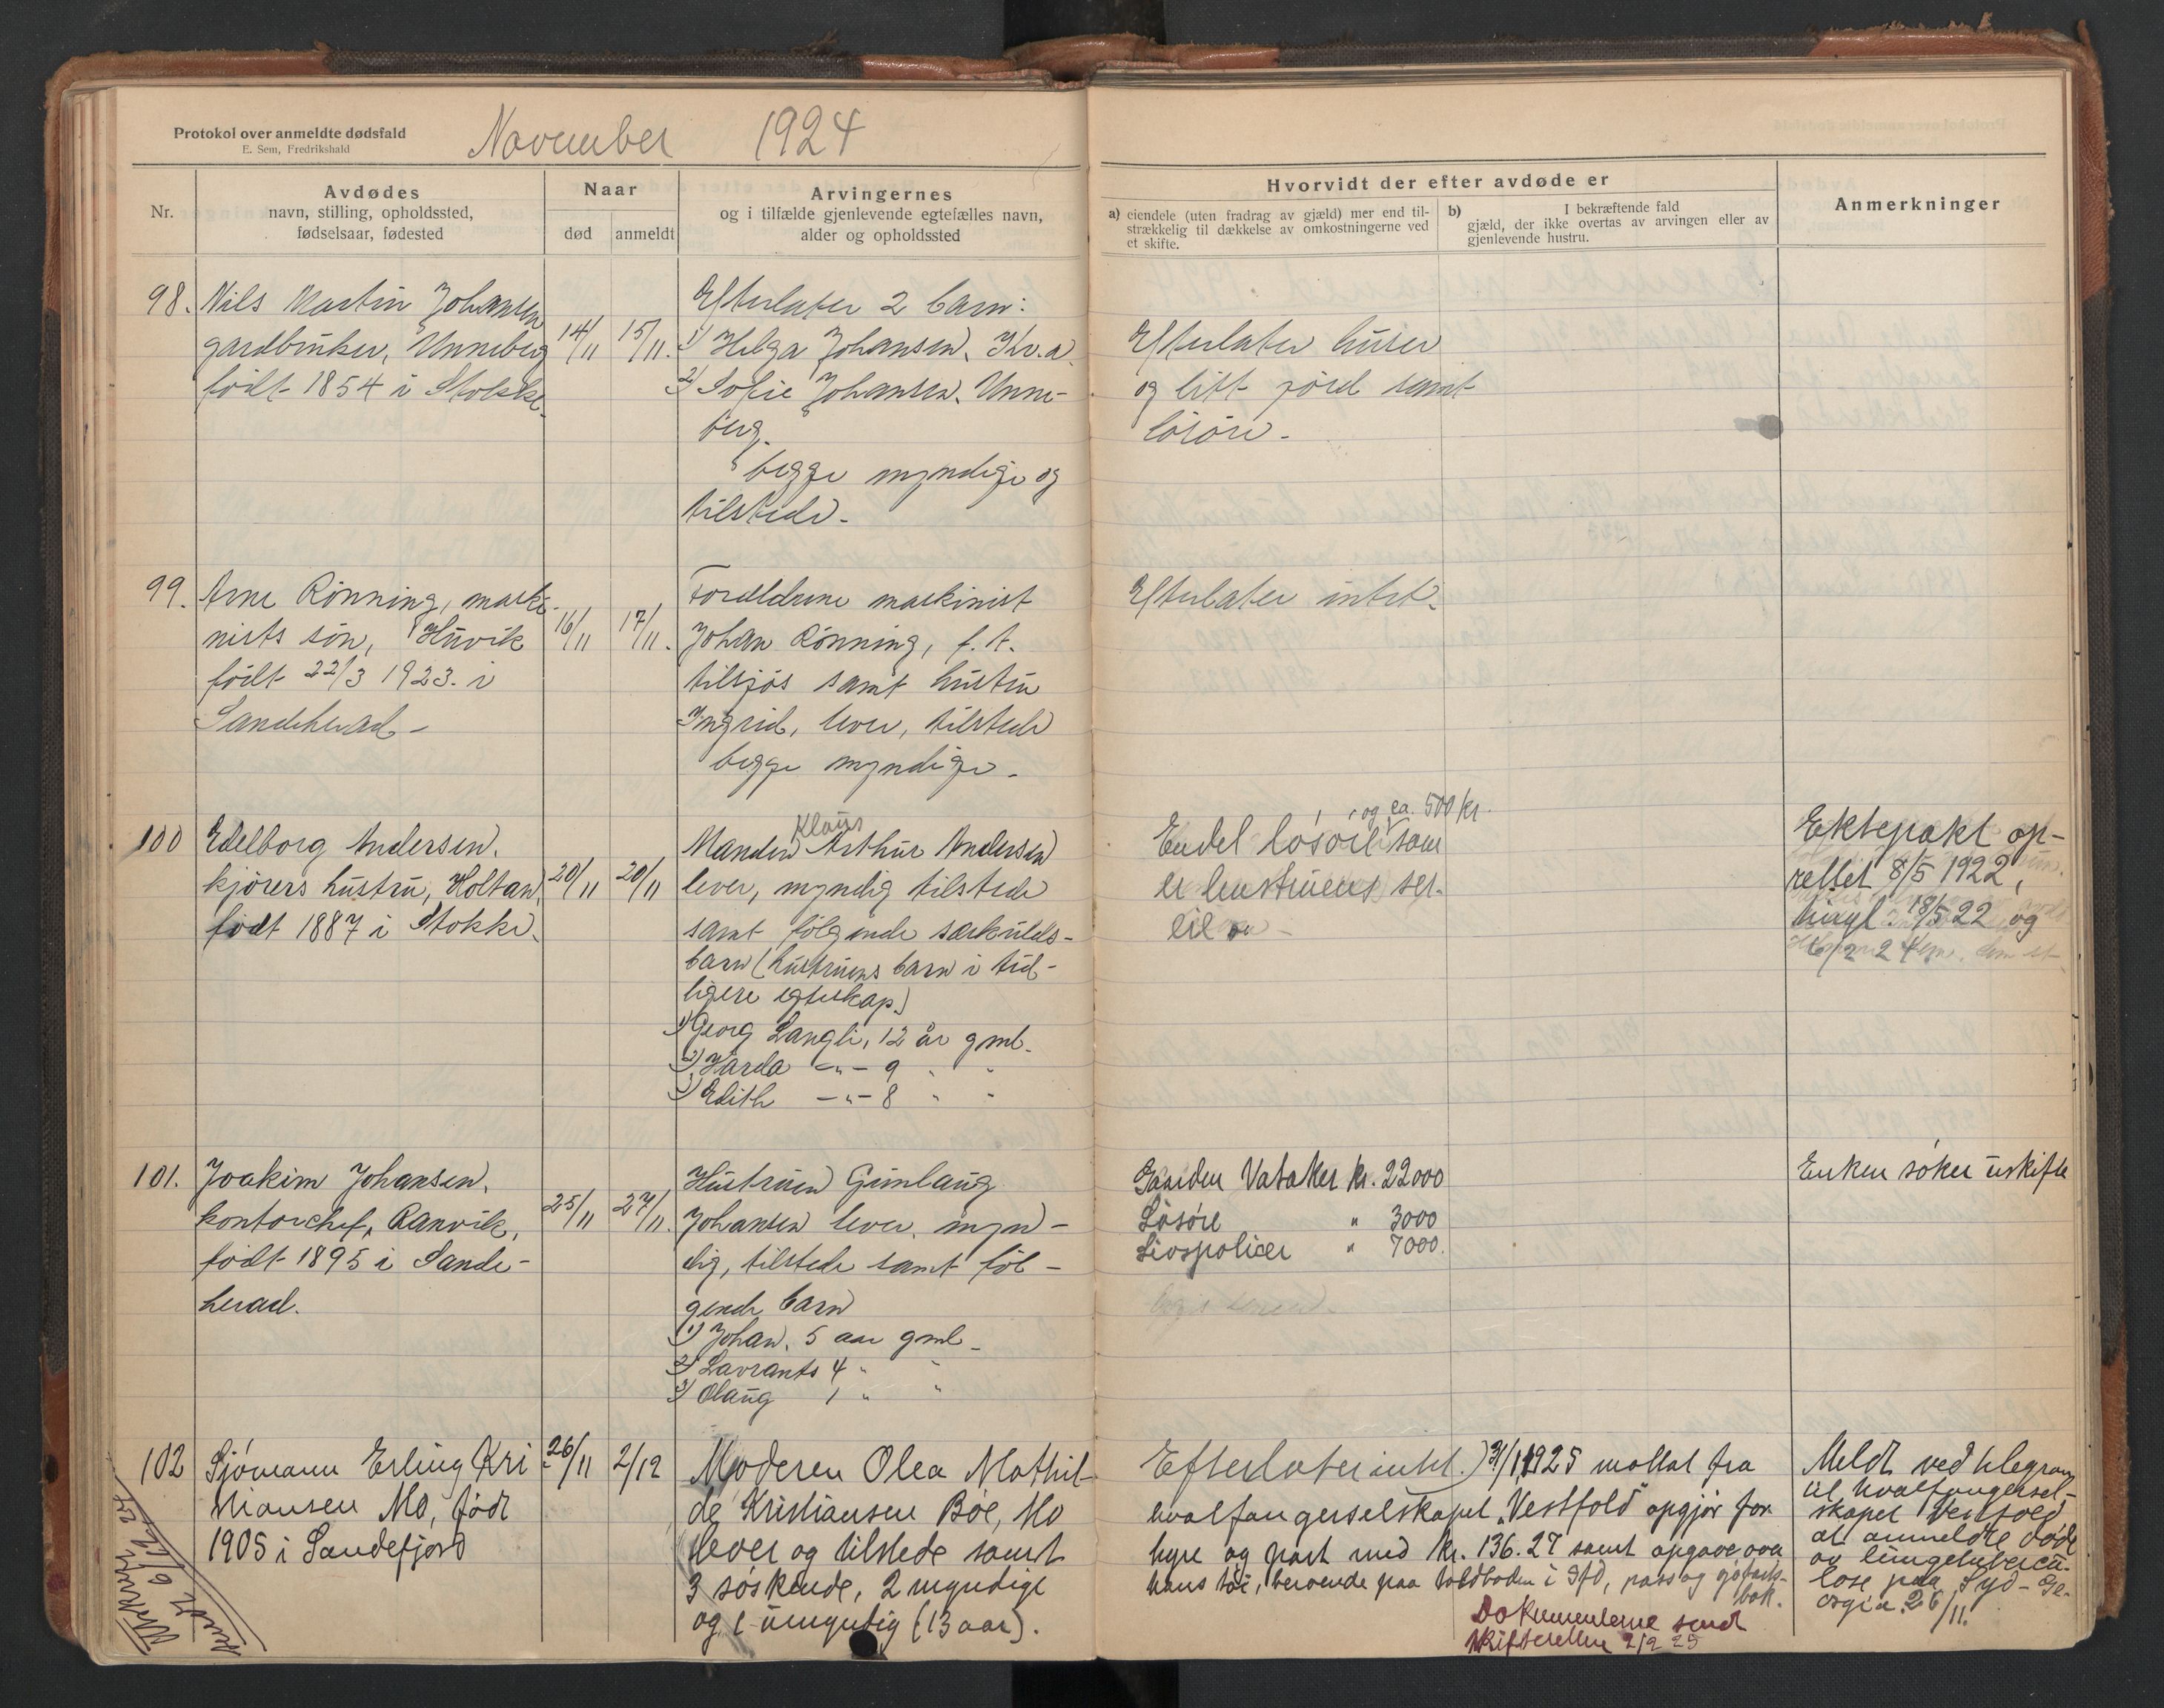 Protokol over anmeldte dødsfald
E. Sem, Fredrikshald
November 1924
Nr.
Avdødes
navn, stilling, opholdssted,
fødselsaar, fødested
Naar
død
anmeldt
Arvingernes
og i tilfælde gjenlevende egtefælles navn,
alder og opholdssted
Hvorvidt der efter avdøde er
a) eiendele (uten fradrag av gjæld) mer end til-
strækkelig til dækkelse av omkostningerne ved
et skifte.
b) I bekræftende fald
gjæld, der ikke overtas av arvingen eller av
gjenlevende hustru.
Anmerkninger
98. Nils Martin Johansen
gardbruker, Unneberg
født 1854 i Stokke.
14/11
15/11.
Efterlater 2 barn:
1) Helga Johansen, Kr.a.
2) Sofie Johansen, Unne-
berg.
begge myndige og
tilstede.
Efterlater huser
og litt jord samt
løsøre.
99. Arne Rønning, maski-
nists søn, Huvik
født 22/3 1923. i
Sandeherad
16/11
17/11.
Forældrene maskinist
Johan Rønning, f. t.
tilsjøs samt hustru
Ingrid, lever, tilstede
begge myndige.
Efterlater intet.
100 Edelborg Andersen,
kjørers hustru, Holtan,
født 1887 i Stokke.
20/11
20/11
Klaus
Manden Arthur Andersen
lever, myndig tilstede
samt følgende særkulds-
barn (hustruens barn i tid-
ligere egteskap)
1) Georg Langli, 12 år gml.
2) Harda -"- 9 " "
3) Edith -"- 8 " "
og ca. 500 kr.
Endel løsøre som
er hustruens sær-
eie
Ektepakt op-
rettet 8/5 1922,
tingl. 18/5 22 og
101. Joakim Johansen,
kontorchef, Ranvik,
født 1895 i Sande-
herad.
25/11
27/11.
Hustruen Gunlaug
Johansen lever, myn-
dig, tilstede samt føl-
gende barn
1) Johan, 5 aar gml.
2) Lavrants 4 " "
3) Olaug 1 " "
Gaarden Vataker kr. 22000
Løsøre " 3000
Livspolicer " 7000.
Enken søker uskifte
102 Sjømann Erling Kri
stiansen Mo, født
1905 i Sandefjord
26/11
2/12
Moderen Olea Mathil-
de Kristiansen Bøe, Mo
lever og tilstede samt
3 søskende, 2 myndige
og 1 umyndig (13 aar).
Efterlater intet.) 31/1 1925 mottat fra
hvalfangerselskapet "Vestfold" opgjør for
hyre og part med kr. 136.27 samt opgave over
hans tøi, beroende paa toldboden i Sfd, pass og
bok.
Dokumenterne sendt
skifteretten 2/2 25
Meldt ved telegram
til hvalfangersel-
skapet Vestfold
at anmeldte døde
av lungetubercu-
lose paa Syd-Ge-
orgia 26/11.